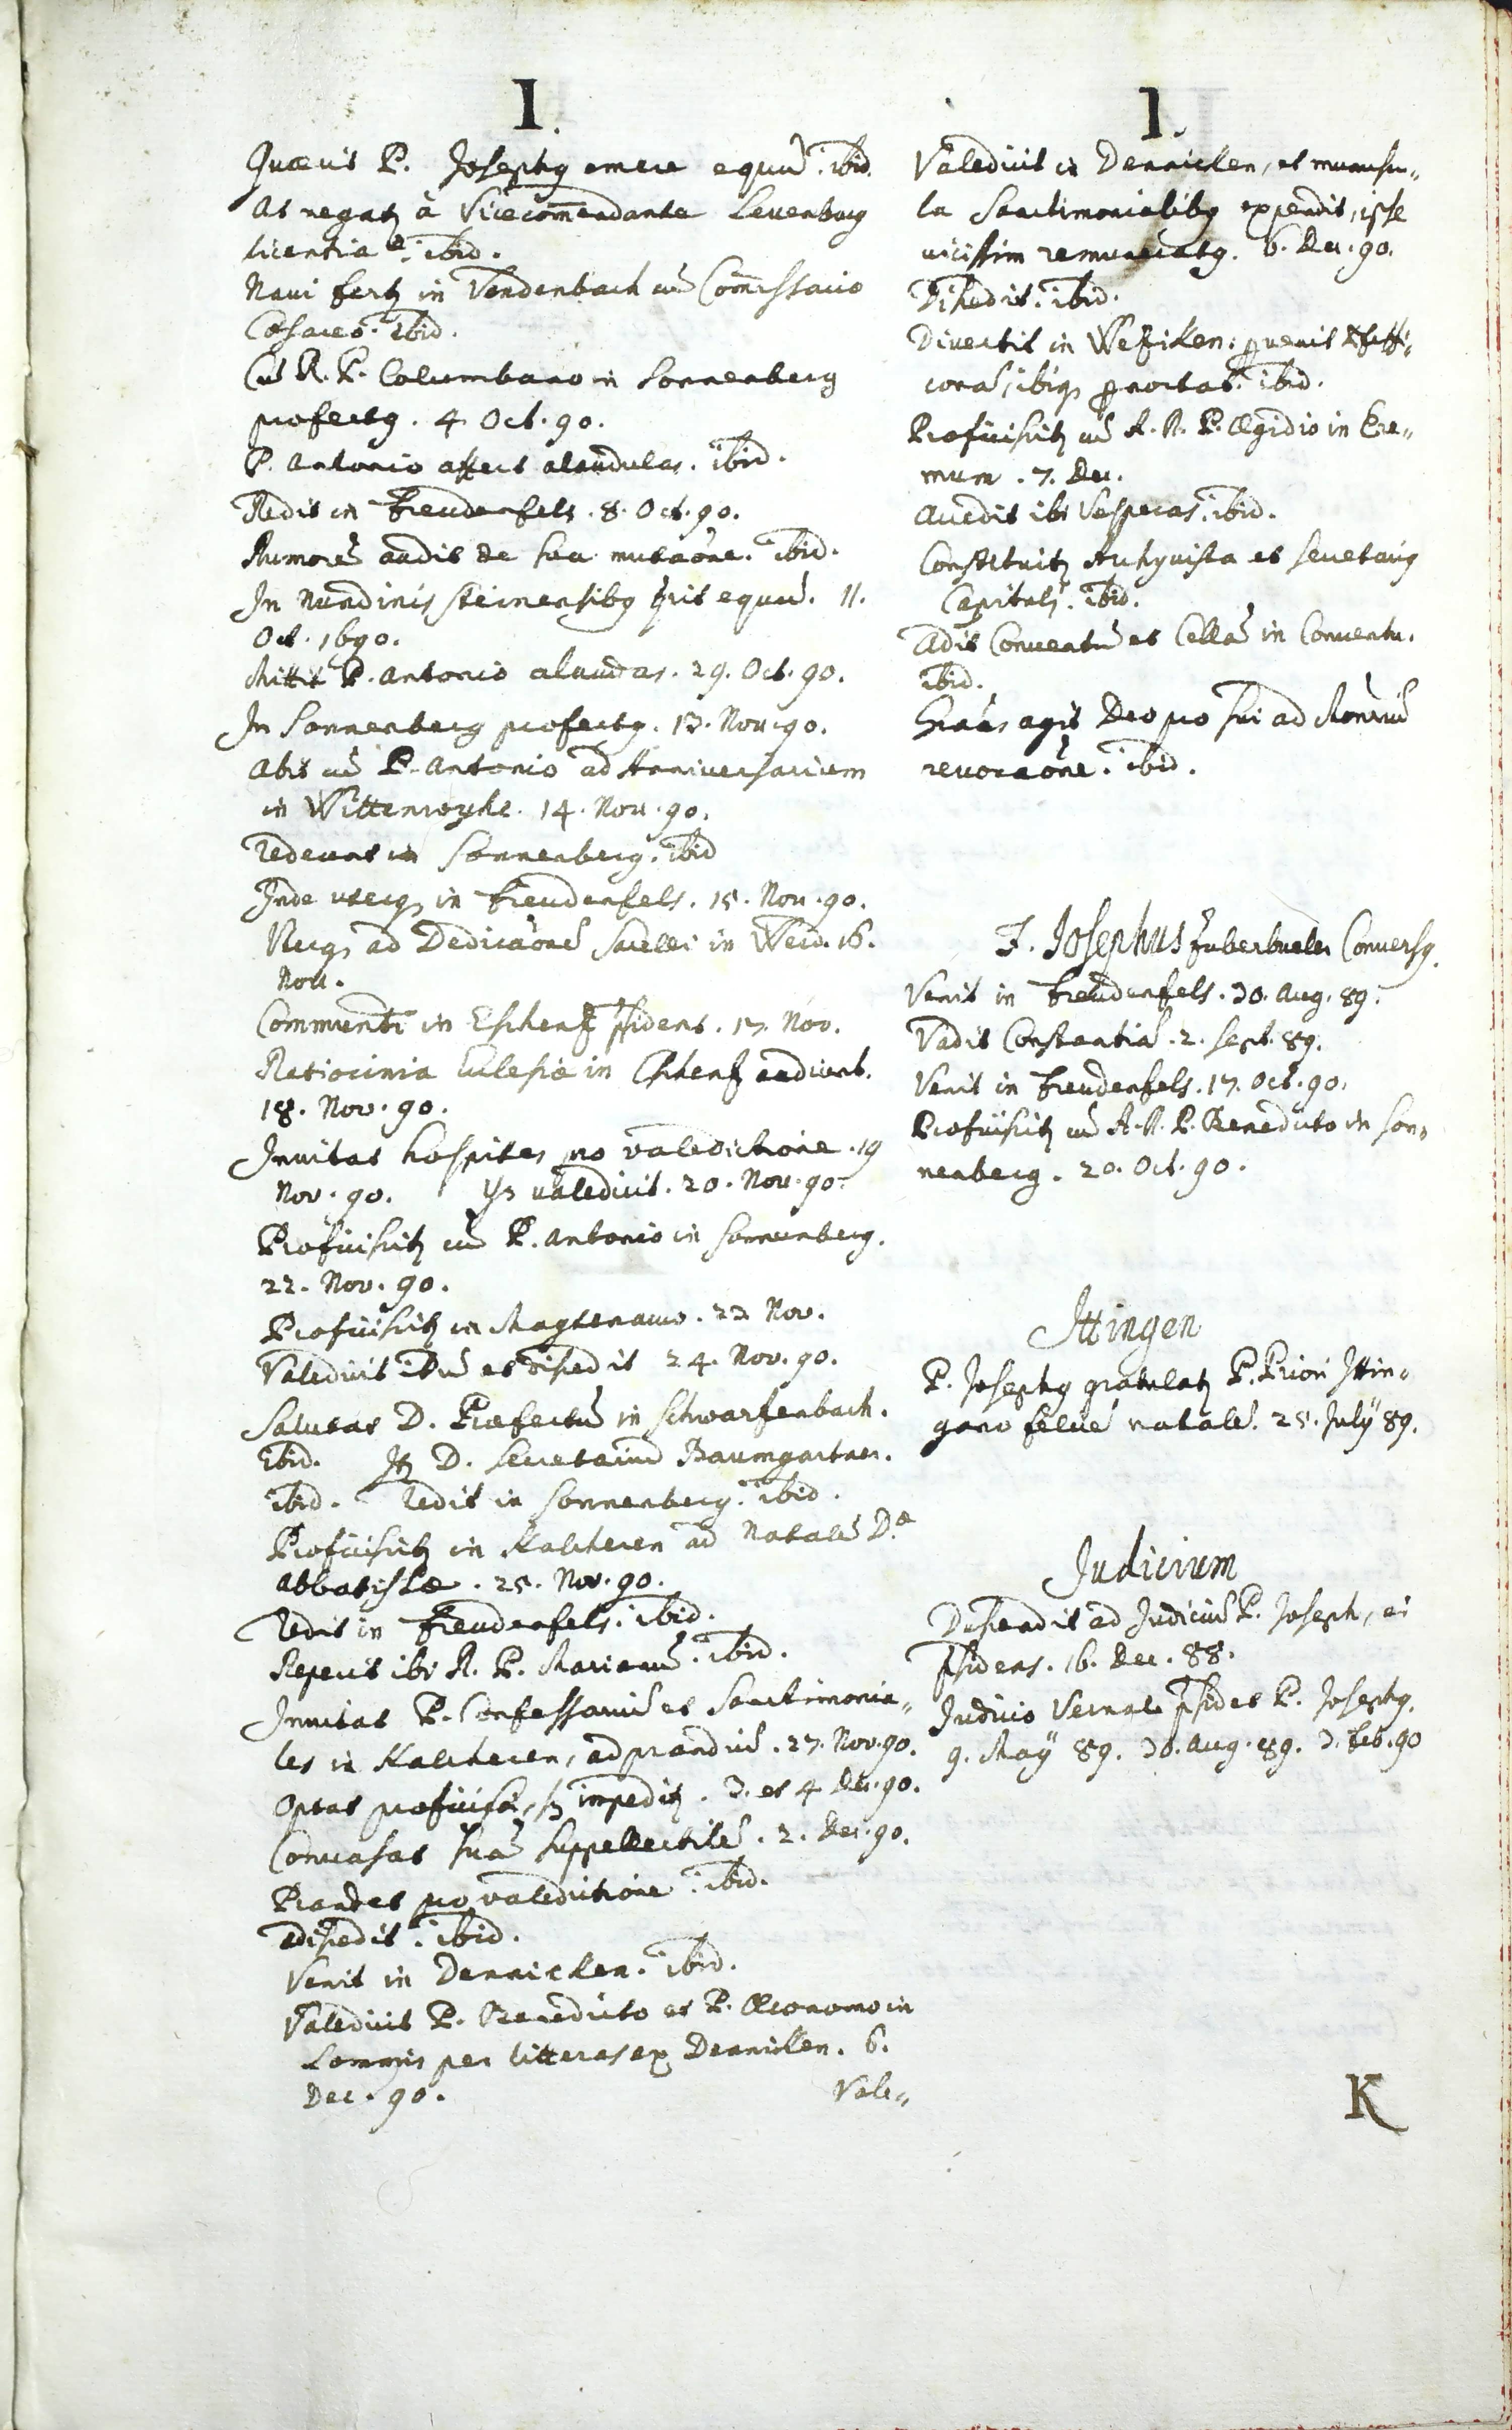 I.
Quærit P. Josephꝰ emere equũ. ibid.
At negatꝫ à Vicecom̄endante Leuenburg
licentia ē. ibid.
Naui fertꝫ in Wendenbach cũ Com̄issario
Cæsareo. ibid.
Cũ R. P. Columbano in Sonnenberg
profectꝰ. 4. Oct. 90.
P. Antonio affert alaudulas. ibid.
Redit in Freudenfels. 8. Oct. 90.
Rumorẽ audit de sua mutaõne. ibid.
In Nundinis Steinensibꝰ q̃rit equũ. 11.
Oct. 1690.
Mittit P. Antonio alaudas. 29. Oct. 90.
In Sonnenberg profectꝰ. 13. Nou. 90.
Abit cũ P. Antonio ad Anniuersarium
in Wittenwyhl. 14. Nou. 90.
Redeunt in Sonnenberg. ibid
Inde uterqꝫ in Freudenfels. 15. Nou. 90.
Uterqꝫ ad Dedicaõnẽ Sacelli in Werd. 16.
Nou.
Communitꝫ in Eschenz p̃sident. 17. Nov.
Ratiocinia Ecclesiæ in Eschenz audiunt.
18. Nov. 90.
Inuitat hospites pro valedictione. 19
Nov. 90. Ijs valedicit. 20. Nou. 90.
Proficiscitꝫ cũ P. Antonio in Sonnenberg.
22. Nov. 90.
Proficiscitꝫ in Magtenauw. 23. Nov.
Valedicit ibid. et discedit 24. Nov. 90.
Salutat D. Præfectũ in Schwarzenbach.
ibid. Itꝫ D. Secretariũ Baumgartner.
ibid. Redit in Sonnenberg. ibid.
Proficiscitꝫ in Kalcheren ad Natalẽ D.æ
Abbatissæ. 25. Nov. 90.
Redit in Freudenfels. ibid.
Reperit ibi R. P. Marianũ. ibid.
Inuitat P. Confessariũ et Sanctimonia„
les in Kalcheren, ad prandiũ. 27. Nov. 90.
Optat proficisci, sꝫ impeditꝫ. 3. et 4 Dec. 90.
Conuasat suã suppellectilẽ. 2. Dec. 90.
Prandet pro valedictione. ibid.
Discedit. ibid.
Venit in Dennicken. ibid.
Valedicit P. Benedicto et P. Œconomo in
Lommis per litteras ex Dennicken. 6.
Dec. 90. Vale„
I.
Valedicit in Dennicken, et munuscu„
la Sanctimonialibꝰ expendit, ipse
vicissim remuneratꝰ. 6. Dec. 90.
Discedit. ibid.
Divertit in Wezicken: peruenit Pfeffi„
conã, ibiqꝫ pernoctat. ibid.
Proficiscitꝫ cũ A. R. P. Ægidio in Ere„
mum. 7. Dec.
Audit ibi Vesperas. ibid.
Constituitꝫ Archyvista et Secretariꝰ
Capituli. ibid.
Adit Conuentũ et Cellã in Conuentu.
ibid.
Gratias agit Deo pro sui ad Monriũ
reuocaõne. ibid.
F. Josephus Zuberbueler Conuersꝰ.
Venit in Freudenfels. 30. Aug. 89.
Vadit Constantiã. 2. Sept. 89.
Venit in Freudenfels. 17. Oct. 90.
Proficiscitꝫ cũ A. R. P. Benedicto in Son„
nenberg. 20. Oct. 90.
Ittingen
P. Josephꝰ gratulatꝫ P. Priori Ittin„
gano felicẽ natalẽ. 25. July 89.
Judicium
Descendit ad Judiciũ P. Joseph, ei
p̃sidens. 16. Dec. 88.
Judicio Vernali p̃sidet P. Josephꝰ.
9. Maÿ 89. 30. Aug. 89. 3. Feb. 90
K